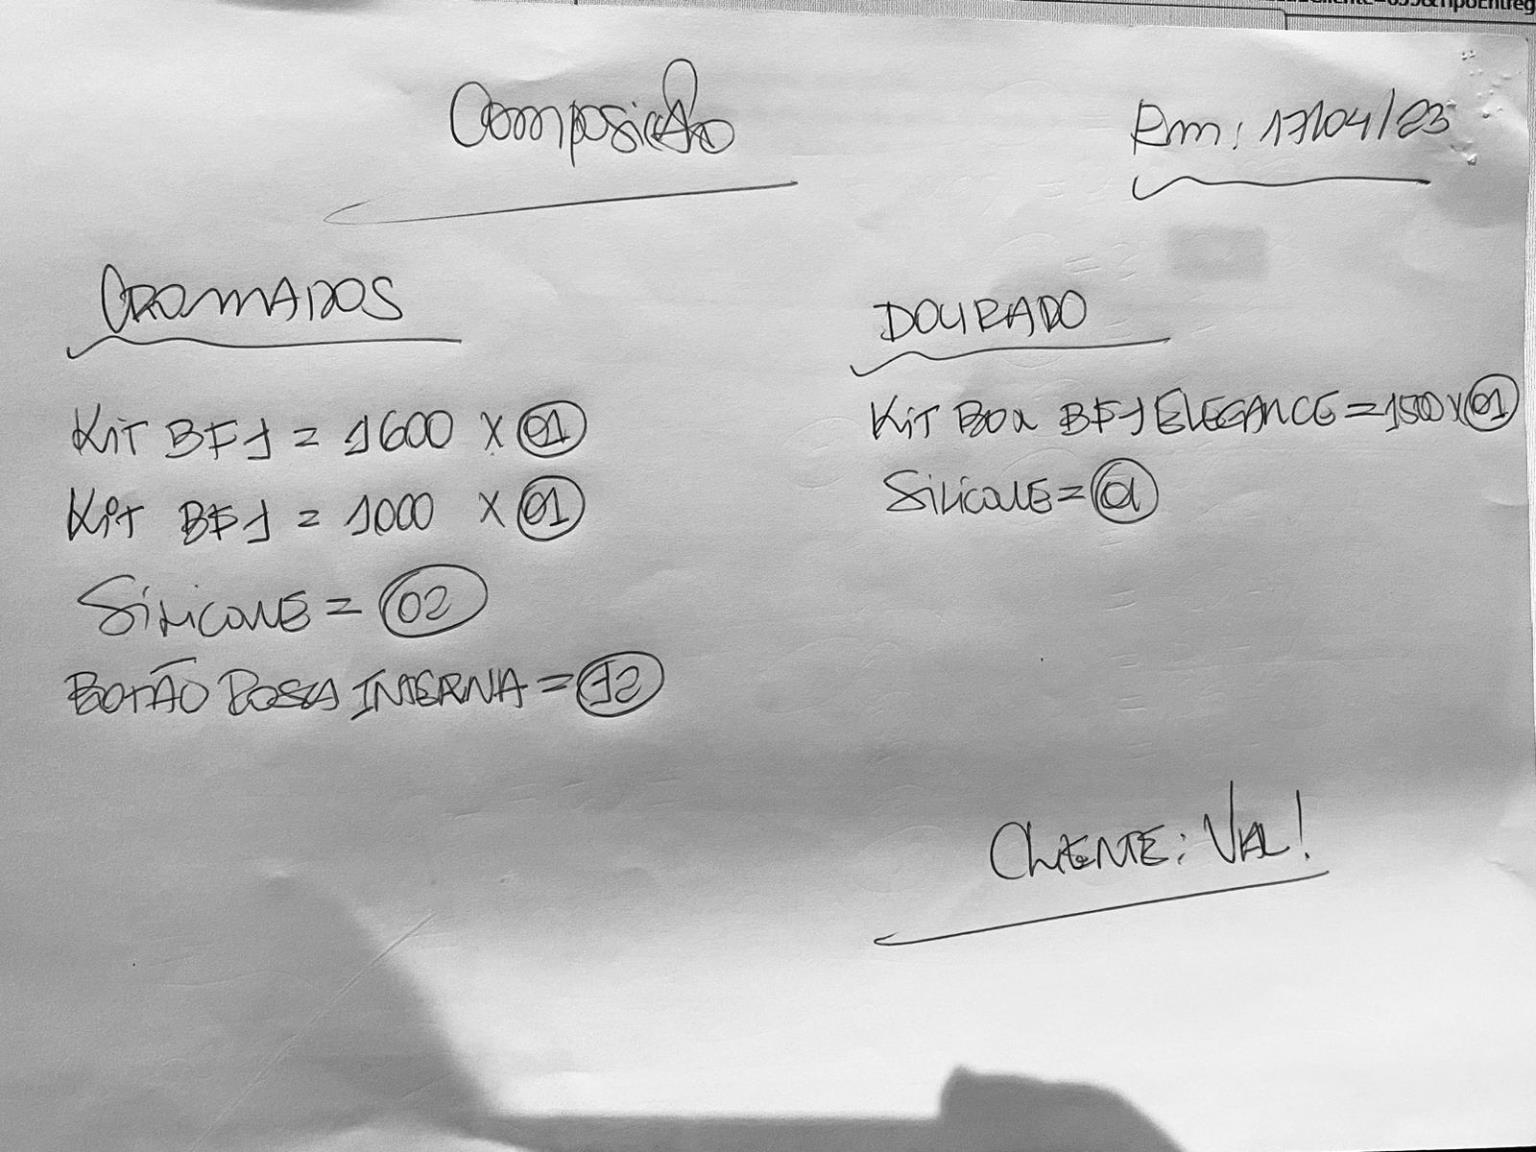 Composição
Em: 17/04/23
CROMADOS
Kit BF1 = 1600 X 01
Kit BF1 = 1000 X 01
Silicone = 02
BOTÃO ROSCA INTERNA = 12
DOURADO
Kit Box BF1 ELEGANCE = 1500 X 01
Silicone = 01
CLIENTE: VAL!